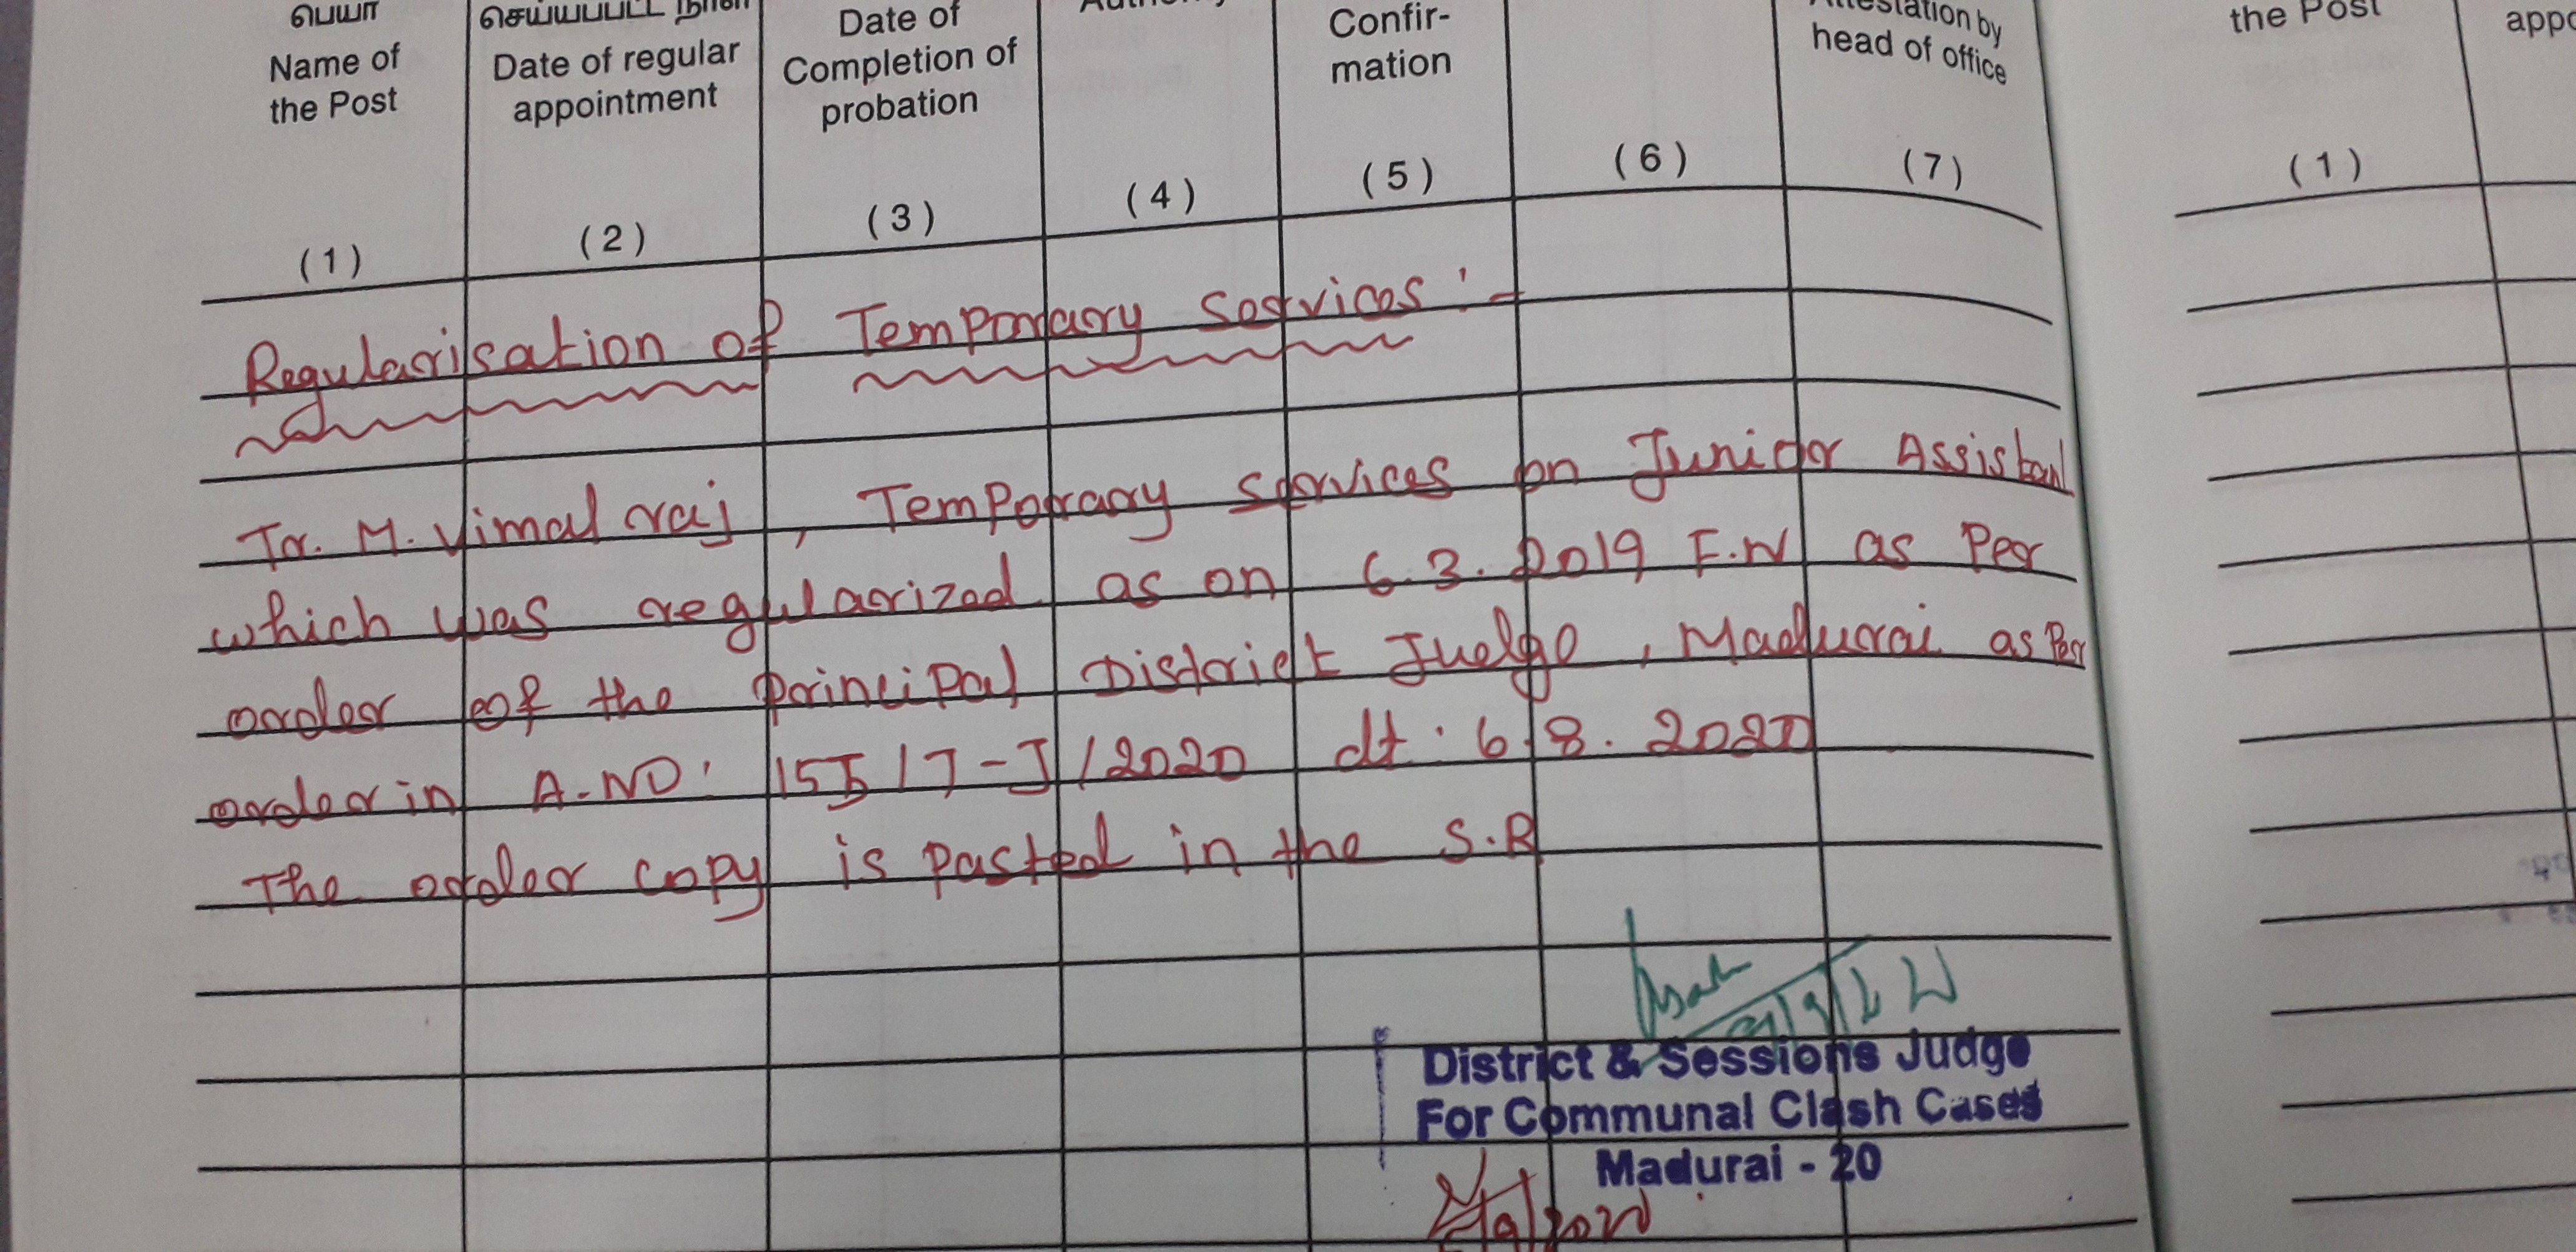 பெயர் செய்யப்பட்ட நாள்
Name of the Post
Date of regular appointment
Date of Completion of probation
Confir-mation
Attestation by head of office
the Post
(1) (2) (3) (4) (5) (6) (7)
(1)
Regularisation of Temporary Services :-
Tr. M. Vimal raj , Temporary services on Junior Assistant
which was regularized as on 6.3.2019 F.N as Per
order of the principal District Judge , Madurai as Per
order in A.NO: 155/7-J/2020 dt: 6.8.2020
The order copy is pasted in the S.R
District & Sessions Judge
For Communal Clash Cases
Madurai - 20